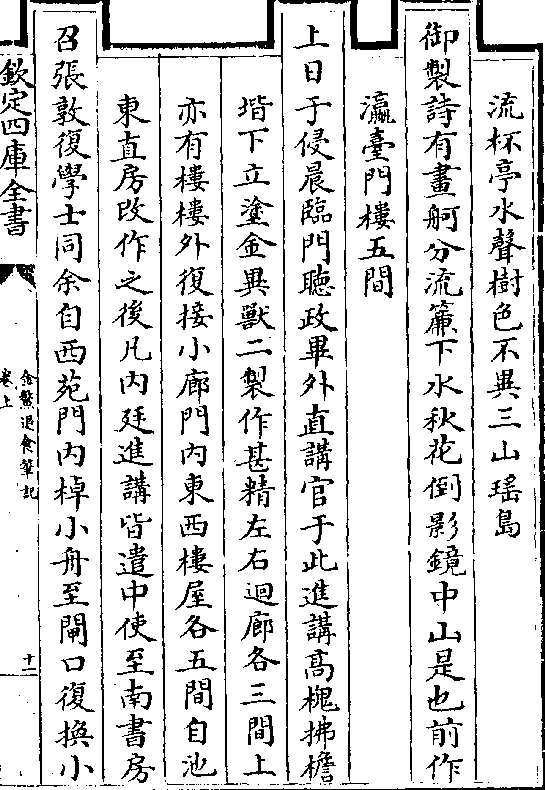 流杯亭水聲樹色不異三山瑤島
御製詩有畫舸分流簾下水秋花倒影鏡中山是也前作
瀛臺門樓五間
上日于侵晨臨門聽政畢外直講官于此進講髙槐拂檐
堦下立塗金異獸二製作甚精左右迴廊各三間上
亦有樓樓外復接小廊門内東西樓屋各五間自池
東直房改作之後凡内廷進講皆遣中使至南書房
召張敦復學士同余自西苑門内棹小舟至閘口復換小
欽定四庫全書
金鰲退食筆記
卷上
十一